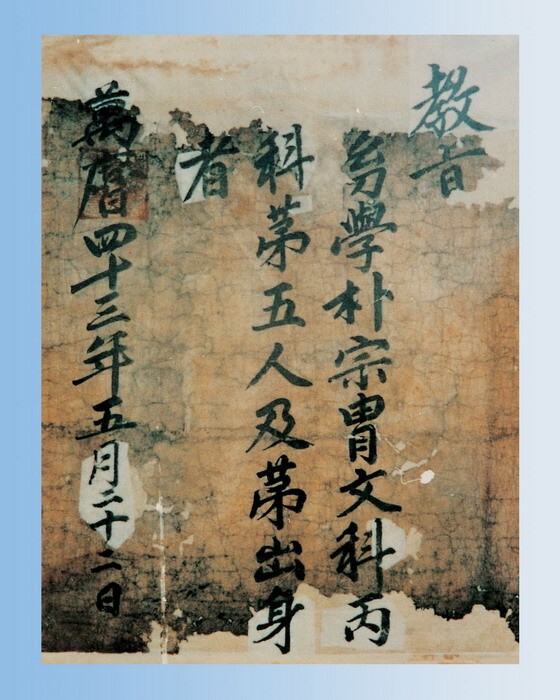 教旨
幼學朴宗胄文科丙
科第五人及第出身
者
萬曆四十三年五月二十二日